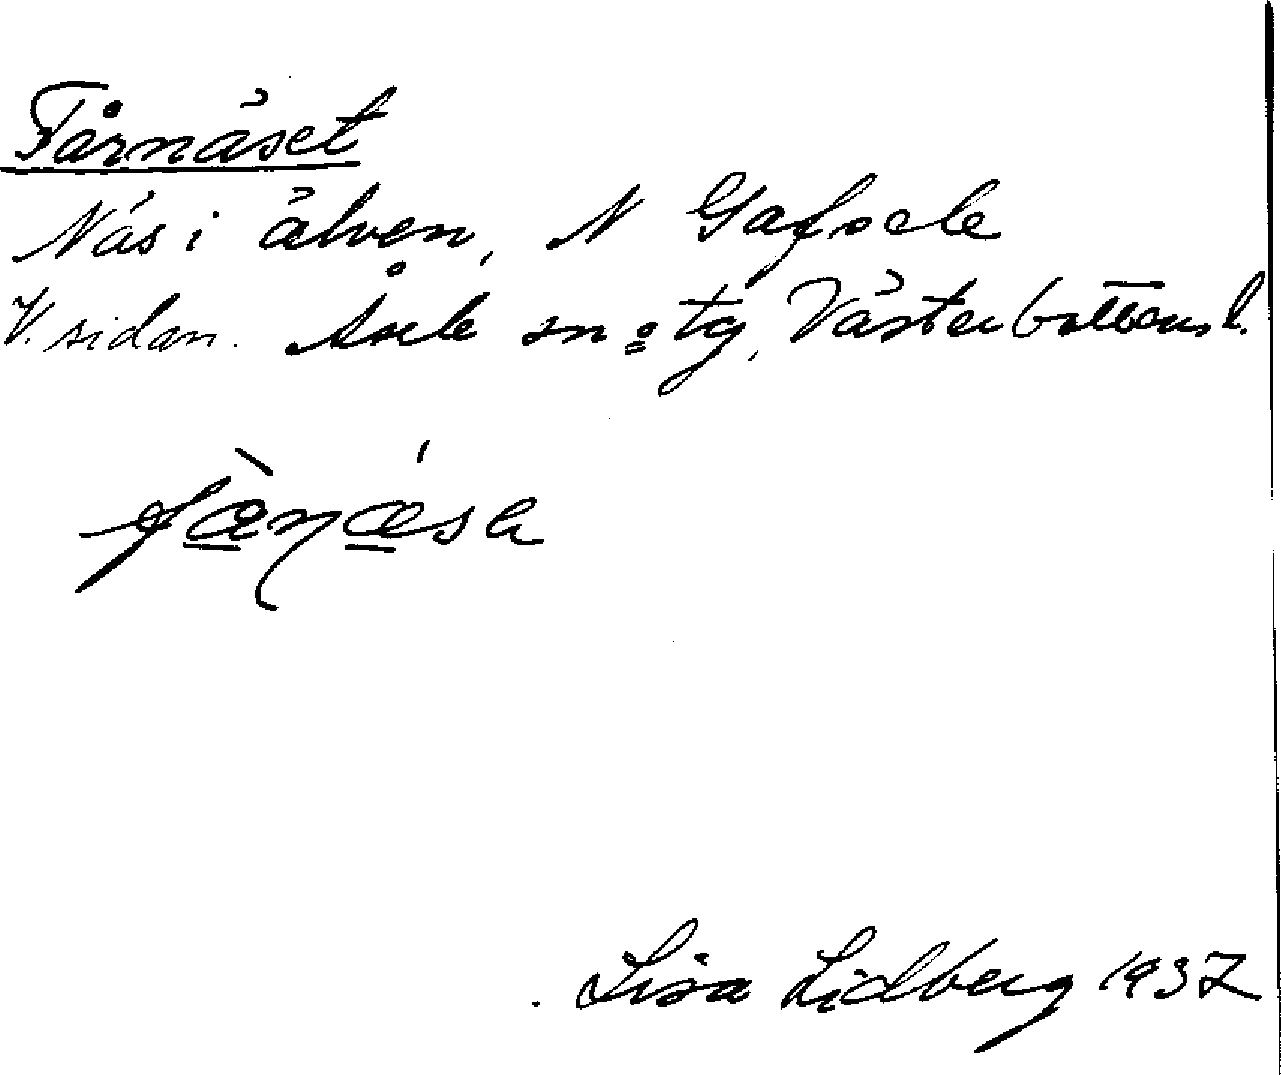 Fårnäset
Näs i älven, N Gafsele
V. sidan. Åsele sn o tg, Västerbottens l.
Lisa Lidberg 1937